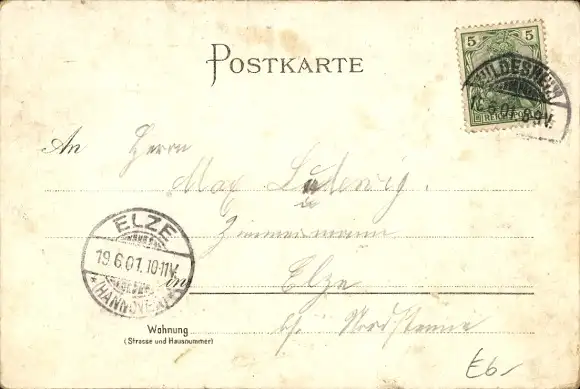 POSTKARTE
5 5
REICHSPOST
HILDESHEIM
6.01. 8-9V.
An Herrn
Max Ludewig.
Zimmermann
ELZE
19.6.01.10-11V.
(HANNOVER)
in Elze
bei Nordstemmen
Wohnung
(Strasse und Hausnummer)
£6-